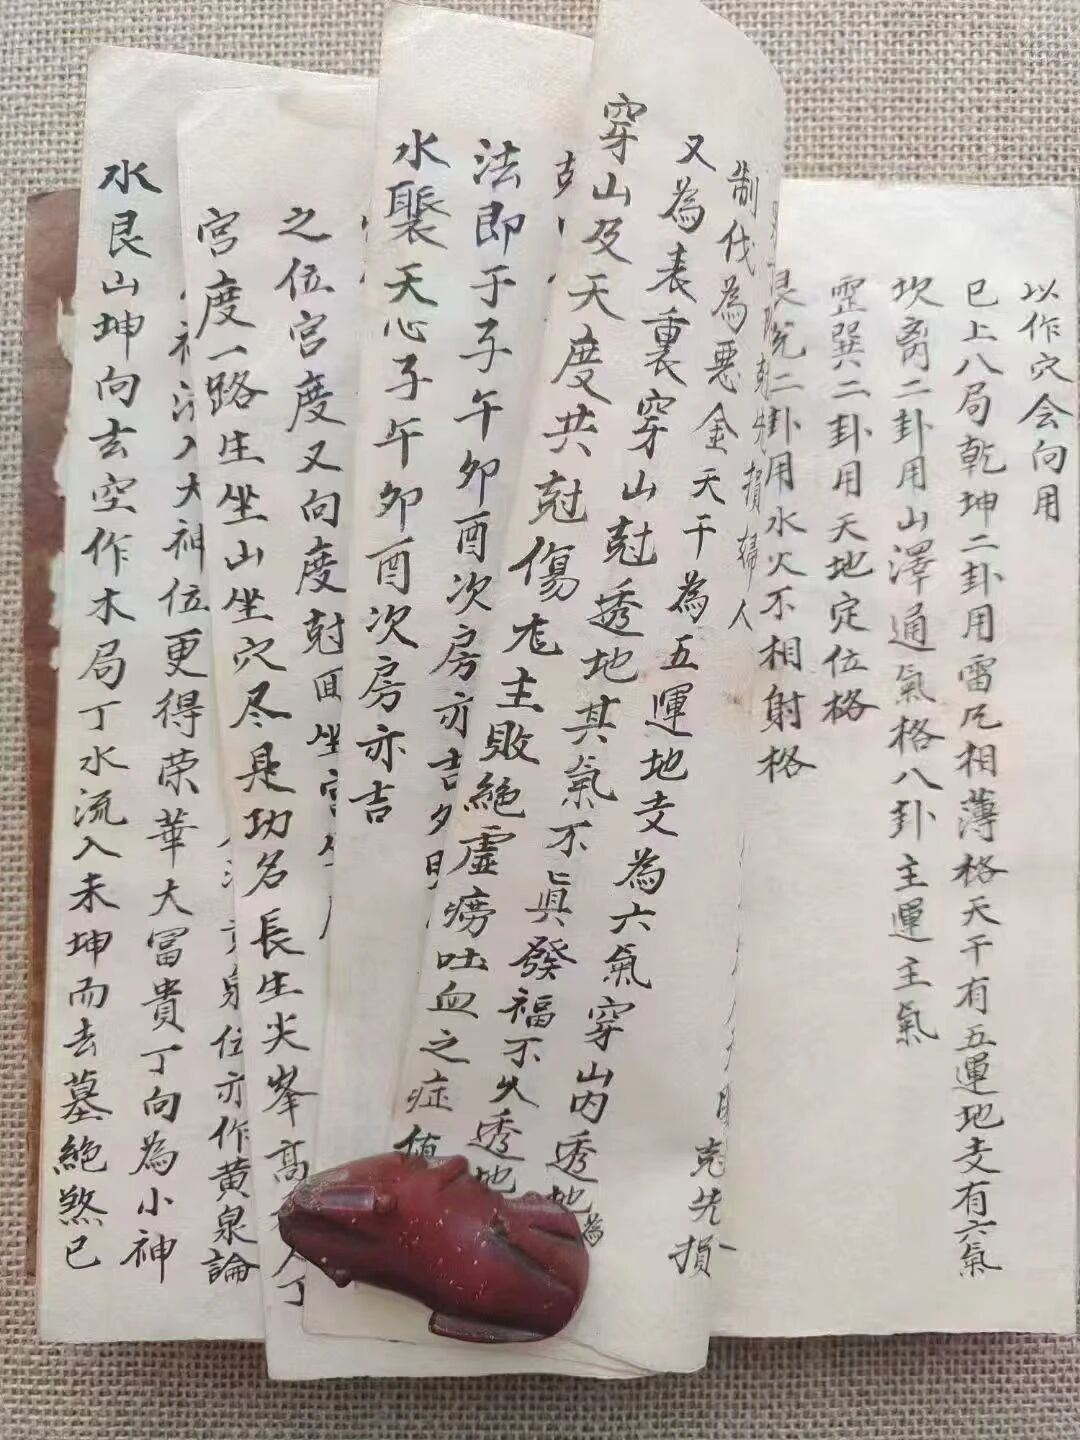 以作穴会向用
巳上八局乾坤二卦用雷凡相薄格天干有五運地支有六氣
坎离二卦用山澤通氣格八卦主運主氣
巽二卦用天地定位格
艮兑二卦用水火不相射格
制伐為惡
克先損婦人
又為表裏穿山透地其氣不眞發福不久透地
金天干為五運地支為六氣穿山丙透地為
克先損
穿山及天度共尅傷尤主敗絕虛癆吐血之症
法即于子午卯酉次房亦吉
水聚天心子午卯酉次房亦吉
之位宮度又向度尅面坐宮
宮度一路生坐山坐穴尽是功名長生尖峯高
位亦作黄泉論
入大神位更得荣華大冨貴丁向為小神
水艮山坤向去空作木局丁水流入未坤而去墓絕煞已